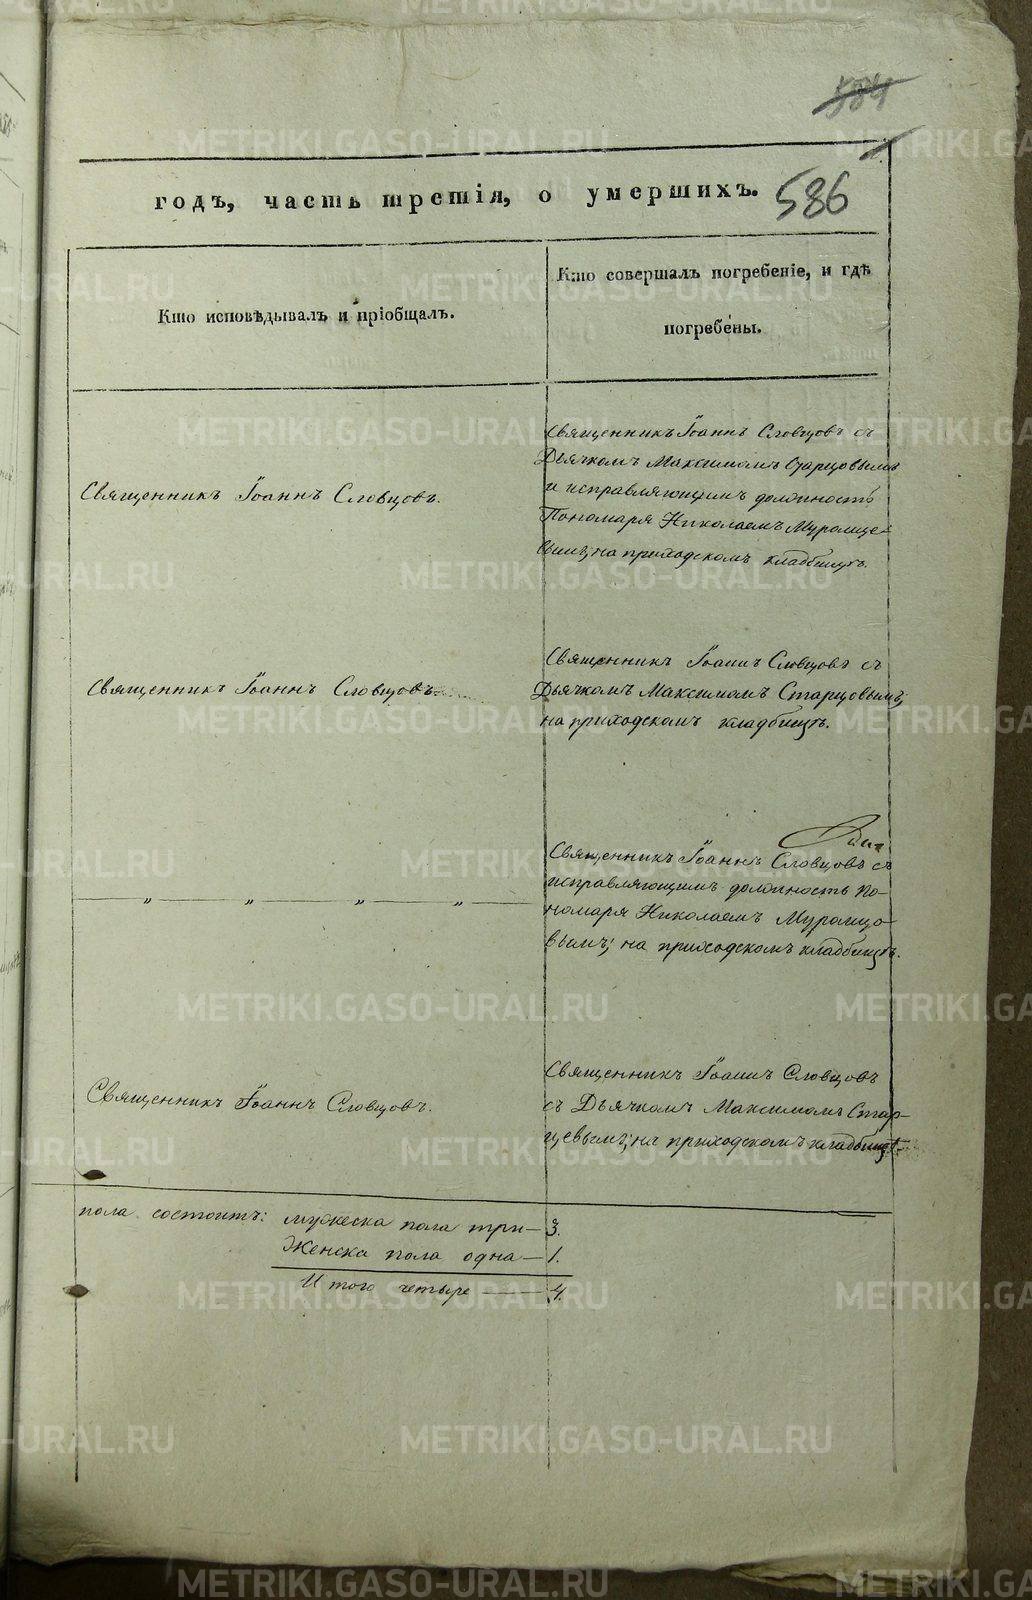 584
годъ, часть третія, о умершихъ. 586
Кто исповѣдывалъ и пріобщалъ.
Кто совершалъ погребеніе, и гдѣ
погребены.
Священникъ Іоаннъ Словцовъ.
Священникъ Іоаннъ Словцовъ съ
Дьячкомъ Максимомъ Старцовымъ
и исправляющимъ должность
Пономаря Николаемъ Муромце-
вымъ; на приходскомъ кладбищѣ.
Священникъ Іоаннъ Словцовъ.
Священникъ Іоаннъ Словцовъ съ
Дьячкомъ Максимомъ Старцовымъ;
на приходскомъ кладбищѣ.
— „ — „ — „ — „ —
Священникъ Іоаннъ Словцовъ съ
исправляющимъ должность По-
номаря Николаемъ Муромцо-
вымъ; на приходскомъ кладбищѣ.
Священникъ Іоаннъ Словцовъ.
Священникъ Іоаннъ Словцовъ
съ Дьячкомъ Максимомъ Стар-
цевымъ; на приходскомъ кладбищѣ.
пола состоитъ: мужеска пола три — 3.
Женска пола одна — 1.
Итого четыре — 4.
METRIKI.GASO-URAL.RU